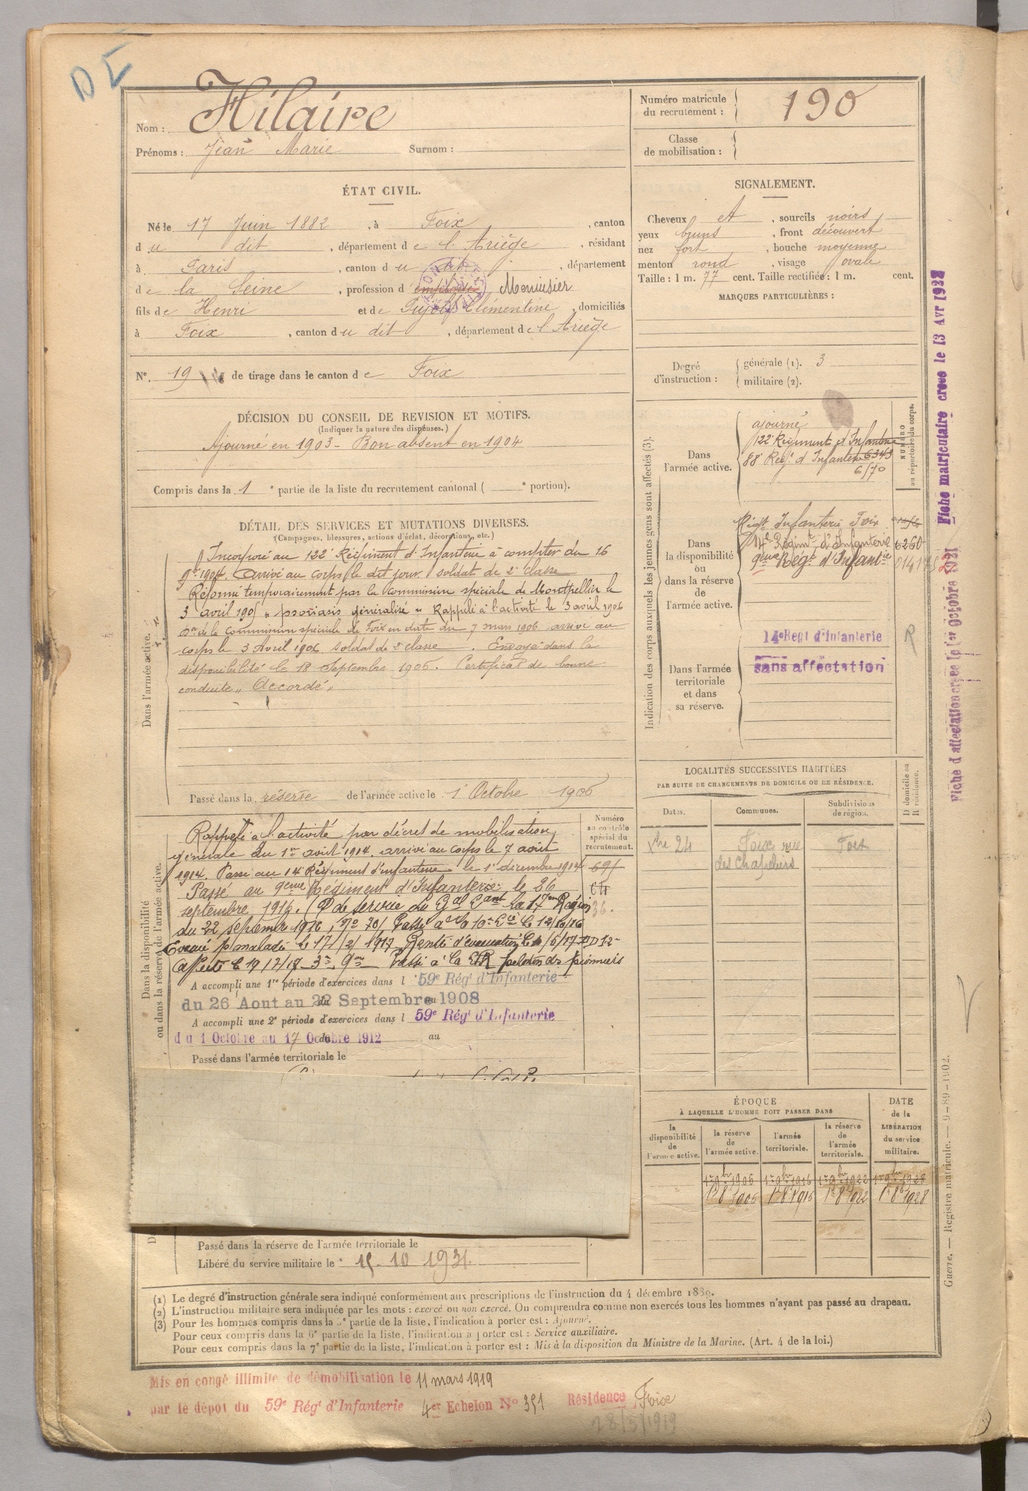 DE
Nom : Hilaire
Prénoms : Jean Marie Surnom :
Numéro matricule du recrutement : 190
Classe de mobilisation :
ÉTAT CIVIL.
Né le 17 Juin 1882, à Foix, canton
du dit, département de l'Ariège, résidant
à Paris, canton du, département
de la Seine, profession d' Menuisier
fils de Henri et de Pujol Clémentine, domiciliés
à Foix, canton du dit, département de l'Ariège
N° 19 de tirage dans le canton de Foix
DÉCISION DU CONSEIL DE REVISION ET MOTIFS.
(Indiquer la nature des dispenses.)
Ajourné en 1903 - Bon absent en 1904
Compris dans la 1 e partie de la liste du recrutement cantonal ( e portion).
DÉTAIL DES SERVICES ET MUTATIONS DIVERSES.
(Campagnes, blessures, actions d'éclat, décorations, etc.)
Dans l'armée active.
Incorporé au 122e Régiment d'Infanterie à compter du 16
9bre 1904. Arrivé au corps le dit jour soldat de 2e classe
Réformé temporairement par la Commission spéciale de Montpellier le
3 avril 1905 " psoriasis généralisé " Rappelé à l'activité le 3 avril 1906
de la Commission spéciale de Foix en date du 7 mars 1906 arrivé au
corps le 3 Avril 1906 soldat de 2e classe. Envoyé dans la
disponibilité le 18 Septembre 1906. Certificat de bonne
conduite " Accordé "
Passé dans la réserve de l'armée active le 1er Octobre 1906
Numéro au contrôle spécial du recrutement.
Dans la disponibilité ou dans la réserve de l'armée active.
Rappelé à l'activité par décret de mobilisation
générale du 1er août 1914. arrivé au corps le 7 août
1914. Passé au 14e Régiment d'infanterie le 1er décembre 1914
Passé au 9eme Régiment d'Infanterie le 26
septembre 1916.
du 22 septembre 1916
A accompli une 1re période d'exercices dans l 59e Régt d'Infanterie
du 26 Août au 22 Septembre 1908
A accompli une 2e période d'exercices dans l 59e Régt d'Infanterie
du 1 Octobre au 17 Octobre 1912 au
Passé dans l'armée territoriale le
Passé dans la réserve de l'armée territoriale le
Libéré du service militaire le 15.10 1931
SIGNALEMENT.
Cheveux et, sourcils noirs
yeux bruns, front découvert
nez fort, bouche moyenne
menton rond, visage ovale
Taille : 1 m. 77 cent. Taille rectifiée : 1 m. cent.
MARQUES PARTICULIÈRES :
Degré d'instruction : générale (1). 3
militaire (2).
Indication des corps auxquels les jeunes gens sont affectés (3).
NUMÉRO au répertoire du corps.
Dans l'armée active.
ajourné
122e Régiment d'Infanterie
88e Régt d'Infanterie
Dans la disponibilité ou dans la réserve de l'armée active.
Régt Infanterie Foix
14e Régimt d'Infanterie
9eme Régt d'Infantie
Dans l'armée territoriale et dans sa réserve.
14e Régt d'Infanterie
sans affectation
R
LOCALITÉS SUCCESSIVES HABITÉES
PAR SUITE DE CHANGEMENTS DE DOMICILE OU DE RÉSIDENCE.
Dates. Communes. Subdivisions de région. D domicile ou R résidence.
24 Foix rue des Chapeliers Foix
ÉPOQUE
À LAQUELLE L'HOMME DOIT PASSER DANS
la disponibilité de l'armée active.
la réserve de l'armée active.
l'armée territoriale.
la réserve de l'armée territoriale.
DATE de la LIBÉRATION du service militaire.
Fiche matriculaire créée le 13 Avr 1928
Fiche d'affectation créée le 1er Octobre 1921
Guerre. — Registre matricule. — 9-89-1902.
(1) Le degré d'instruction générale sera indiqué conformément aux prescriptions de l'instruction du 4 décembre 1889.
(2) L'instruction militaire sera indiquée par les mots : exercé ou non exercé. On comprendra comme non exercés tous les hommes n'ayant pas passé au drapeau.
(3) Pour les hommes compris dans la 5e partie de la liste, l'indication à porter est : Ajourné.
Pour ceux compris dans la 6e partie de la liste, l'indication à porter est : Service auxiliaire.
Pour ceux compris dans la 7e partie de la liste, l'indication à porter est : Mis à la disposition du Ministre de la Marine. (Art. 4 de la loi.)
Mis en congé illimité de démobilisation le 11 mars 1919
par le dépôt du 59e Régt d'Infanterie 4e Echelon N° 351 Résidence Foix
28/5/1919